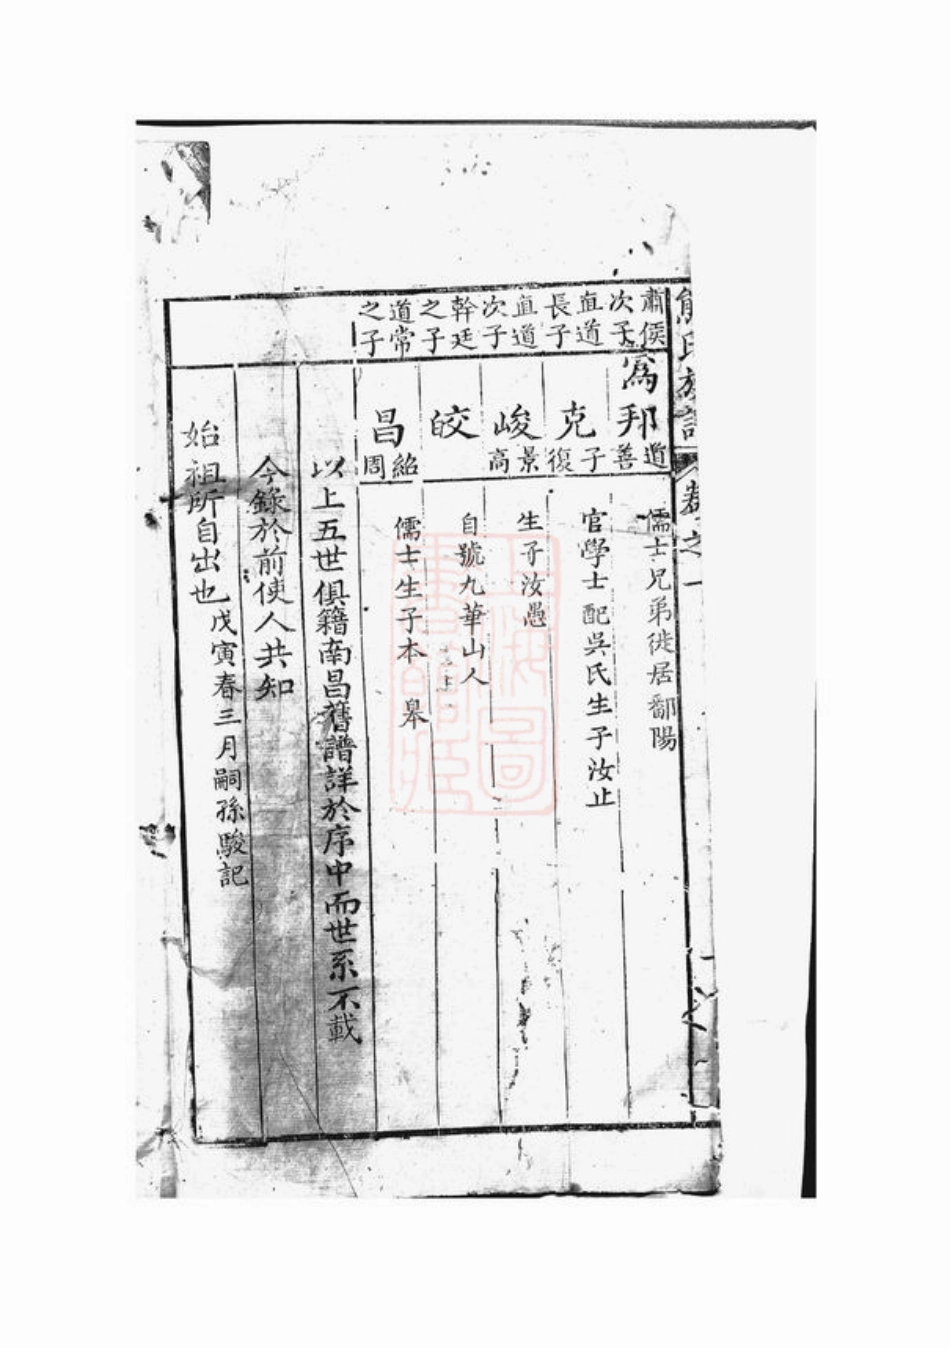 熊氏族譜 卷之一
肅侯次子
為邦 道善
儒士兄弟徙居鄱陽
直道長子
克 子復
官學士配吳氏生子汝止
直道次子
峻 景高
生子汝愚
幹廷之子
皎
自號九華山人
道常之子
昌 紹周
儒士生子本 皋
以上五世俱籍南昌舊譜詳於序中而世系不載
今錄於前使人共知
始祖所自出也戊寅春三月嗣孫駿記
上海圖書館藏